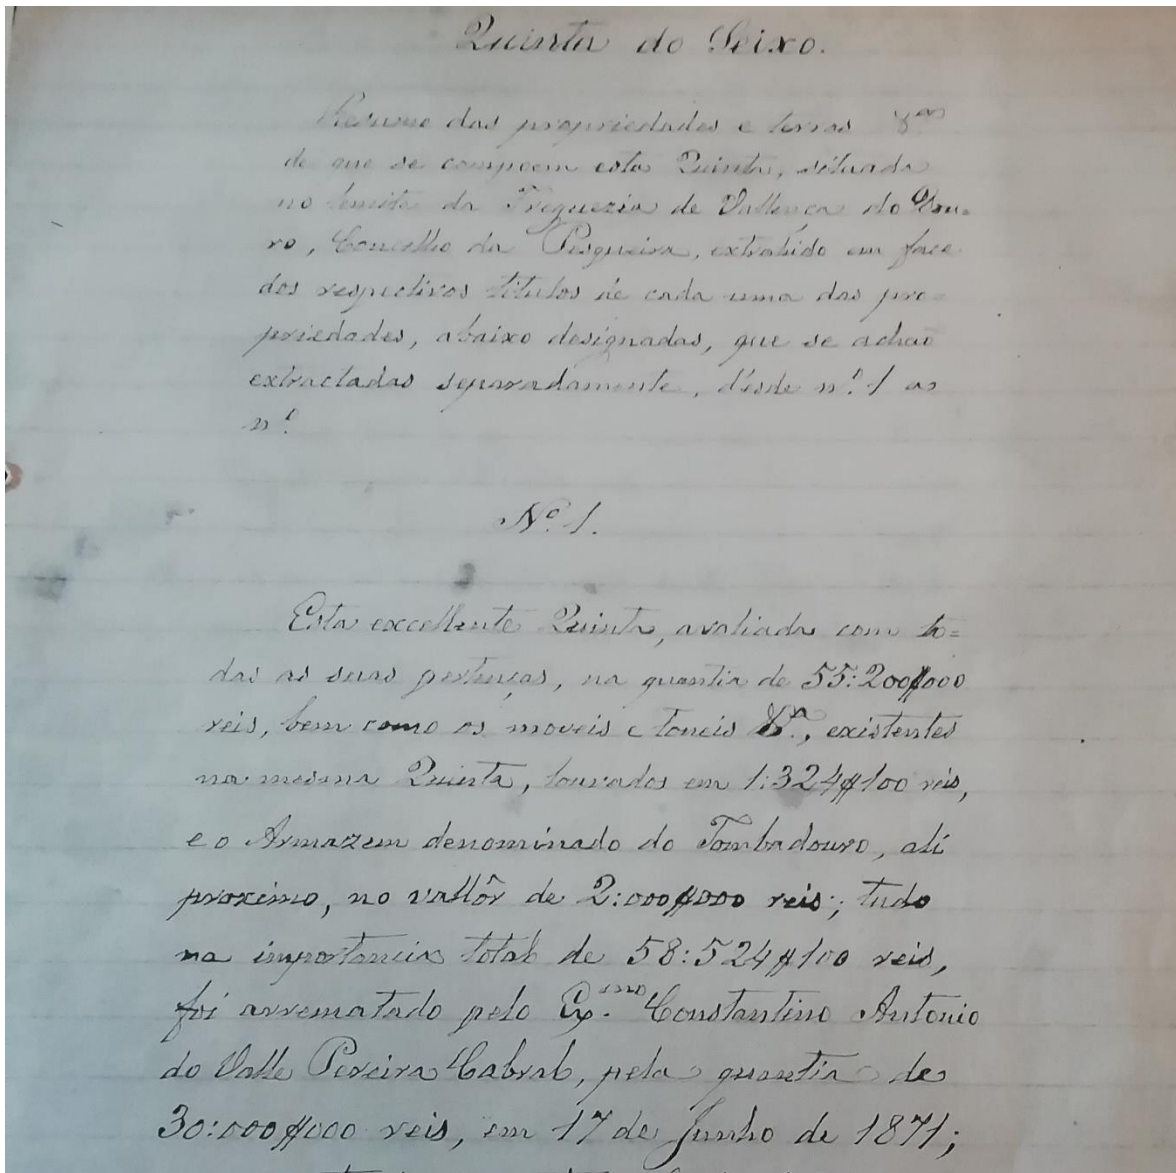 Quinta do Seixo.
Resumo das propriedades e terras &ª
de que se compoem esta Quinta, situada
no lemite da Freguezia de Vallença do Dou=
ro, Concelho da Pesqueira, extrahido em face
dos respectivos titulos de cada uma das pro=
priedades, abaixo designadas, que se achaõ
extractadas separadamente, désde nº. 1 ao
nº.
Nº. 1.
Esta excellente Quinta, avaliada com to=
das as suas pertenças, na quantia de 55:200$000
reis, bem como os moveis e toneis &ª., existentes
na mesma Quinta, louvados em 1:324$100 reis,
e o Armazem denominado do Tombadouro, ali
proximo, no vallôr de 2:000$000 reis; tudo
na importancia total de 58:524$100 reis,
foi arrematado pelo Ex.mo Constantino Antonio
do Valle Pereira Cabral, pela quantia de
30:000$000 reis, em 17 de Junho de 1871;